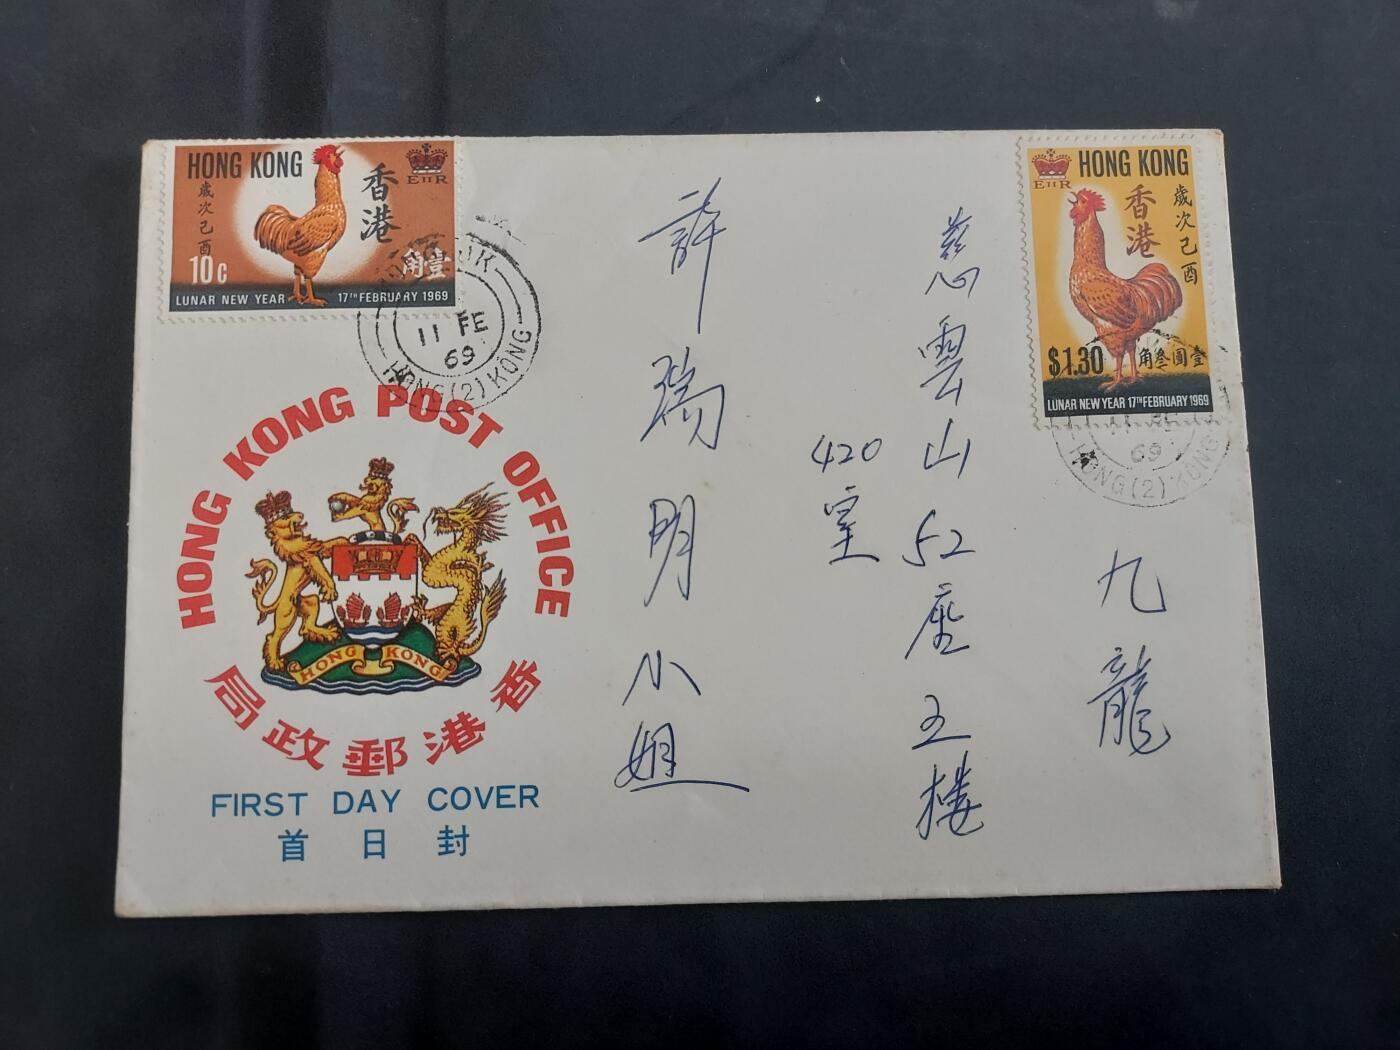 HONG KONG
歲次己酉
香港
EIIR
10c
壹角
LUNAR NEW YEAR 17TH FEBRUARY 1969
11 FE
69
HONG (2) KONG
EIIR
HONG KONG
歲次己酉
香港
$1.30
壹圓叁角
LUNAR NEW YEAR 17TH FEBRUARY 1969
11 FE
69
HONG (2) KONG
HONG KONG POST OFFICE
HONG KONG
香港郵政局
FIRST DAY COVER
首日封
九龍
慈雲山52座五楼
420室
許瑞明小姐